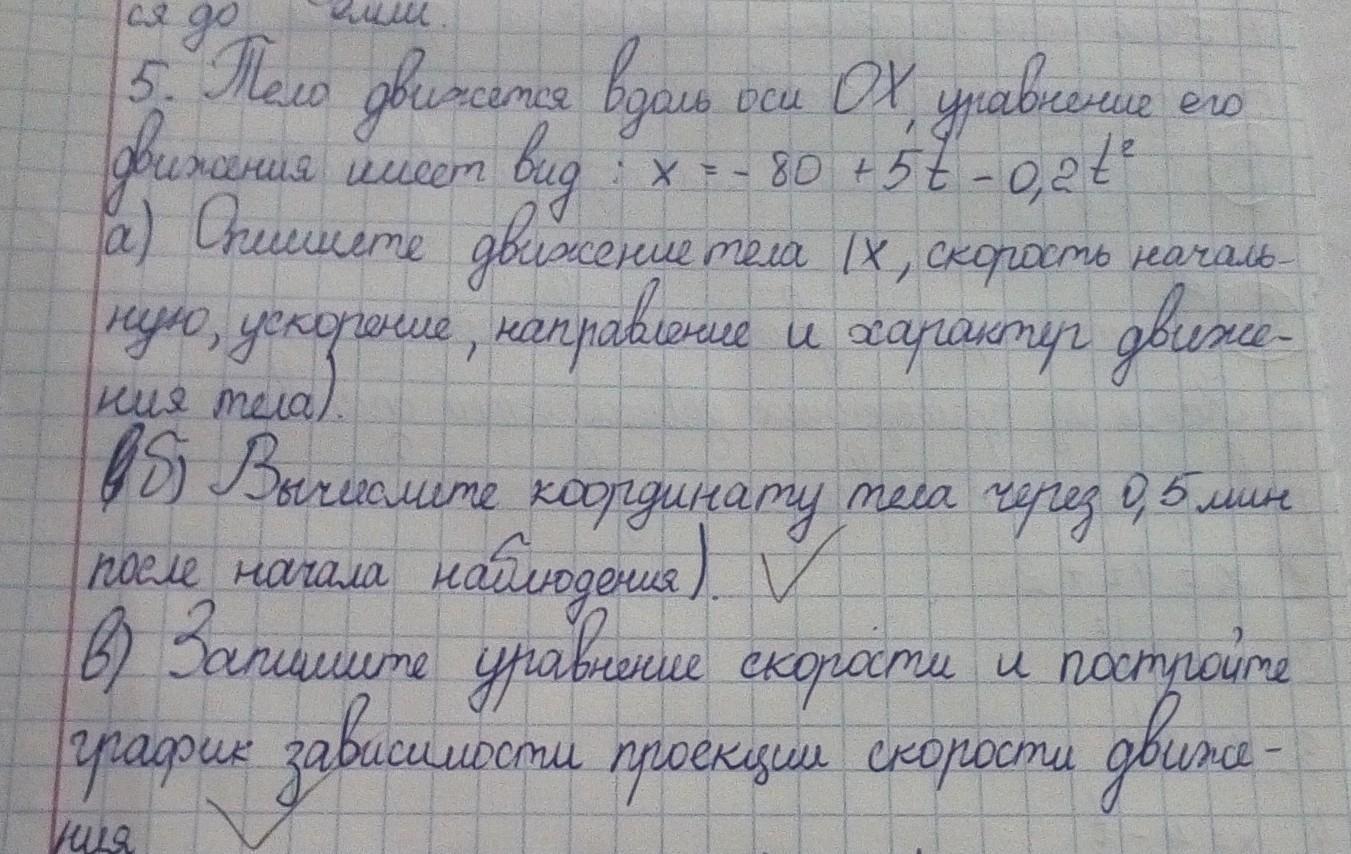 ся до
5. Тело движется вдоль оси OX, уравнение его
движения имеет вид : x = - 80 + 5t - 0,2t²
а) Опишите движение тела (х, скорость началь-
ную, ускорение, направление и характер движе-
ния тела).
б) Вычислите координату тела через 0,5 мин
после начала наблюдения).
в) Запишите уравнение скорости и постройте
график зависимости проекции скорости движе-
ния